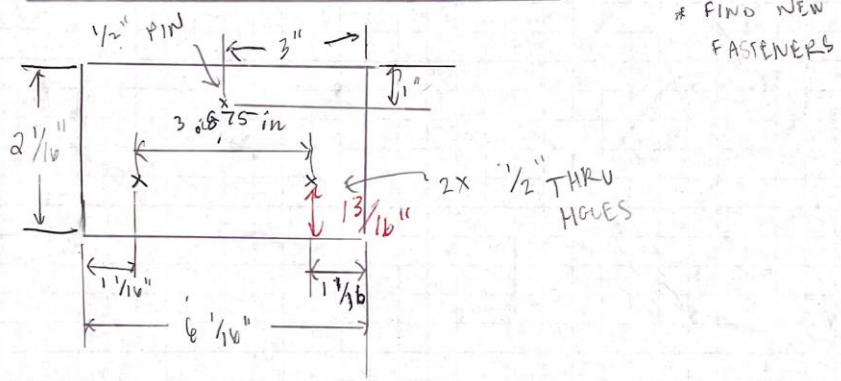 * FIND NEW
FASTENERS
1/2" PIN
3"
1"
2 1/16"
2X 1/2" THRU
HOLES
13/16"
1 1/16"
6 1/16"